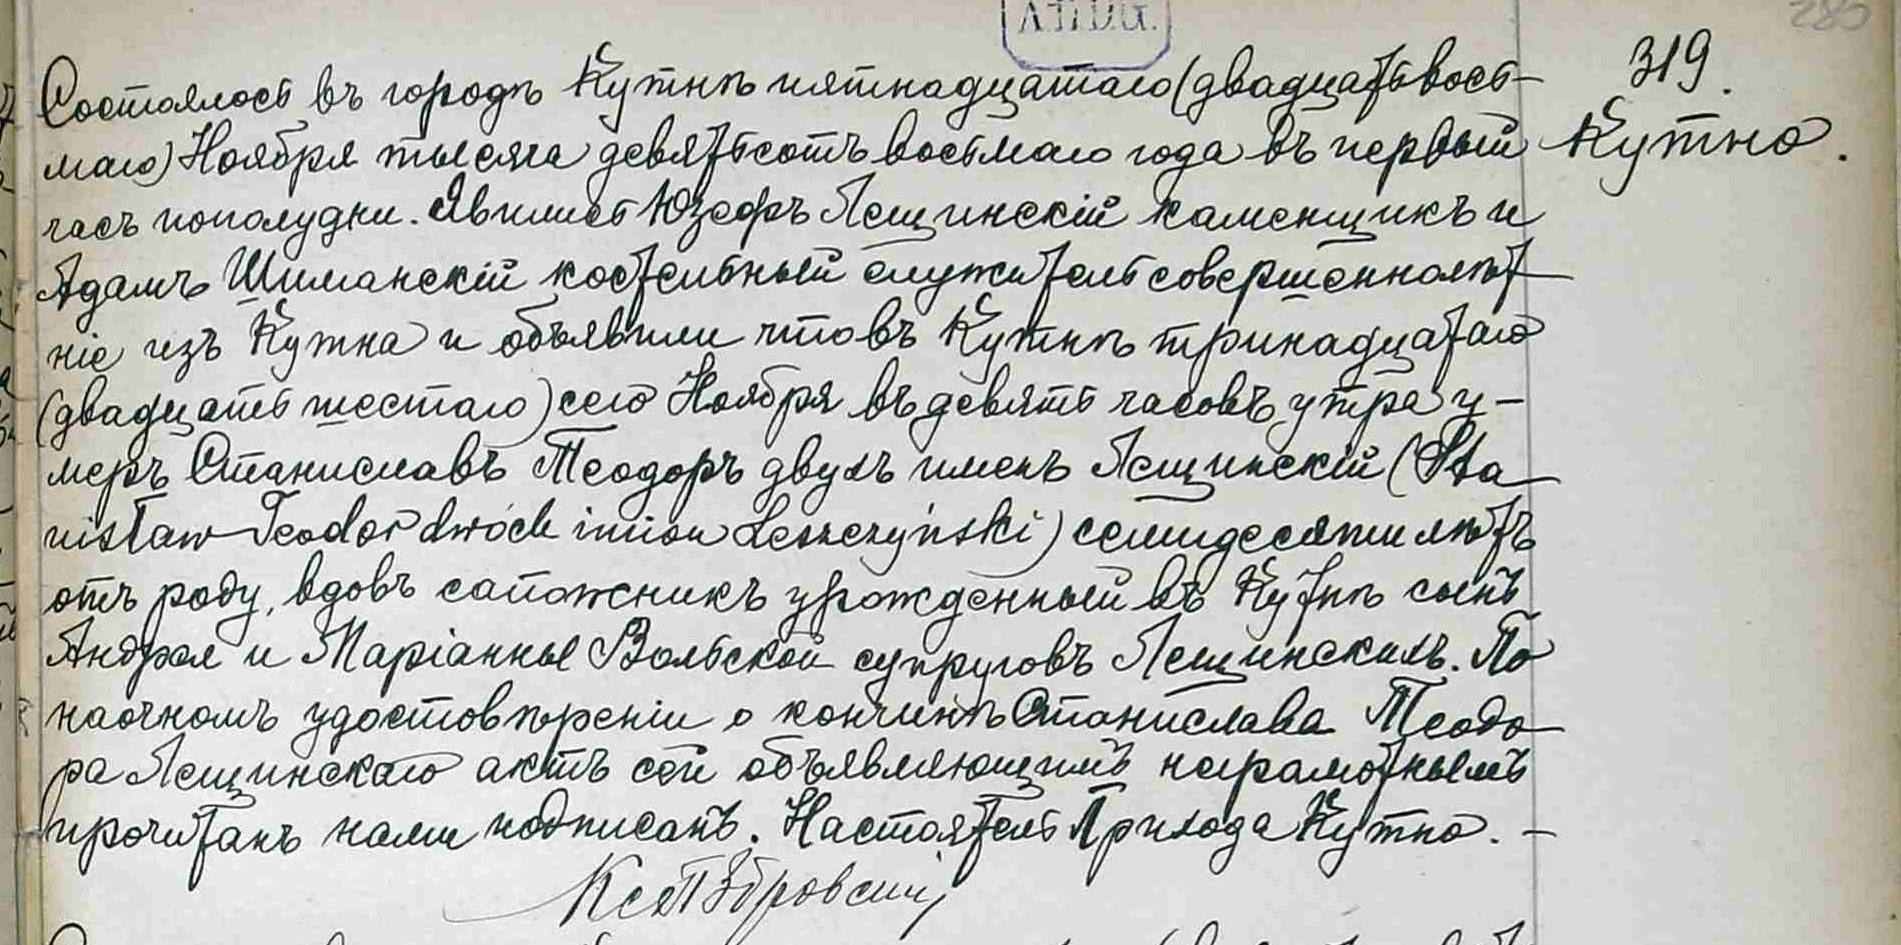 A.P.D.G.
285
319.
Кутно.
Состоялось въ городѣ Кутнѣ пятнадцатаго (двадцать вось-
маго) Ноября тысяча девятьсотъ восьмаго года въ первый
часъ пополудни. Явились Юзефъ Лещинскій каменщикъ и
Адамъ Шиманскій костельный служитель совершеннолѣт-
ніе изъ Кутна и объявили что въ Кутнѣ тринадцатаго
(двадцать шестаго) сего Ноября въ девять часовъ утра у-
меръ Станиславъ Теодоръ двухъ именъ Лещинскій (Sta
nisław Teodor dwóch imion Leszczyński) семидесяти лѣтъ
отъ роду, вдовъ сапожникъ урожденный въ Кутнѣ сынъ
Андрея и Маріанны Вольской супруговъ Лещинскихъ. По
наочномъ удостовѣреніи о кончинѣ Станислава Теодо-
ра Лещинскаго актъ сей объявляющимъ неграмотнымъ
прочитанъ нами подписанъ. Настоятель Прихода Кутно. –